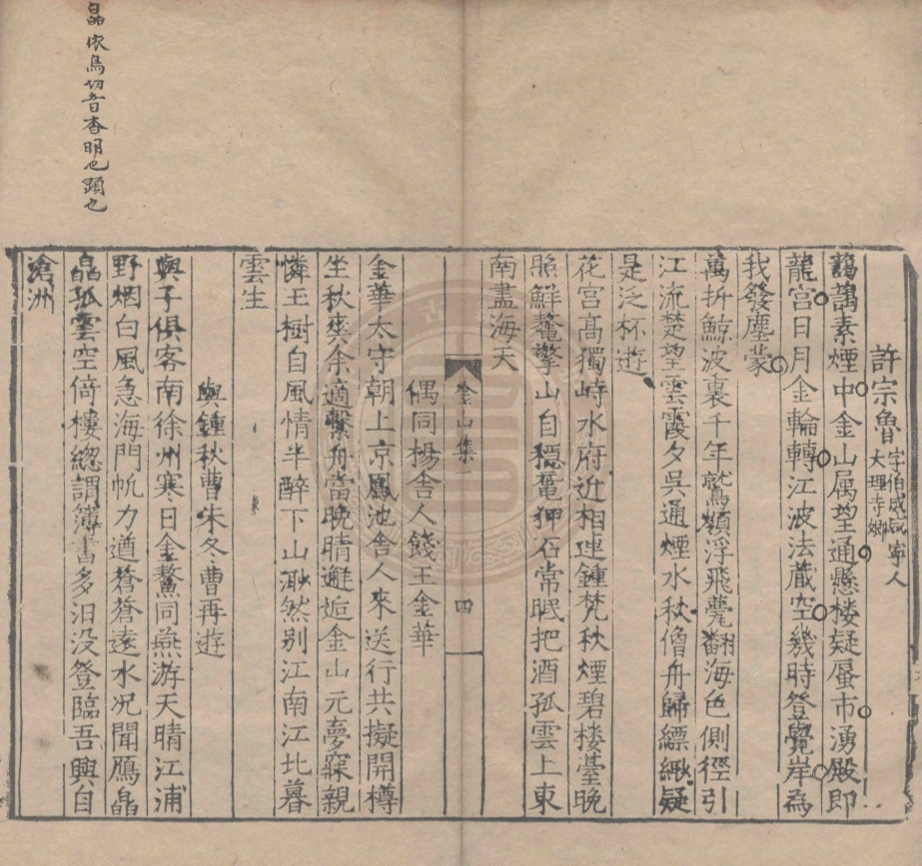 許宗魯字伯咸咸寧人大理寺卿
藹藹素煙中金山属望通懸楼疑蜃市湧殿即
龍宫日月金輪轉江波法蔵空幾時登覺岸為
我發塵蒙
萬折鯨波裏千年鷲嶺浮飛甍翻海色側徑引
江流楚望雲霞夕吳通煙水秋僧舟歸縹緲疑
是泛杯遊
花宫髙獨峙水府近相連鍾梵秋煙碧楼臺晚
照鮮鼇擎山自穏黿狎石常眠把酒孤雲上東
南盡海天
金山集
四
偶同楊舎人餞王金華
金華太守朝上京鳳池舎人来送行共擬開樽
坐秋爽余適繫舟當晚晴邂逅金山元夢寐親
憐玉樹自風情半醉下山渺然别江南江北暮
雲生
與鍾秋曹朱冬曹再遊
與子俱客南徐州寒日金鰲同燕游天晴江浦
野烟白風急海門帆力遒蒼蒼遠水况聞鴈皛
皛孤雲空倚樓總謂簿書多汨没登臨吾興自
滄洲
皛依鳥切音杳明也顕也